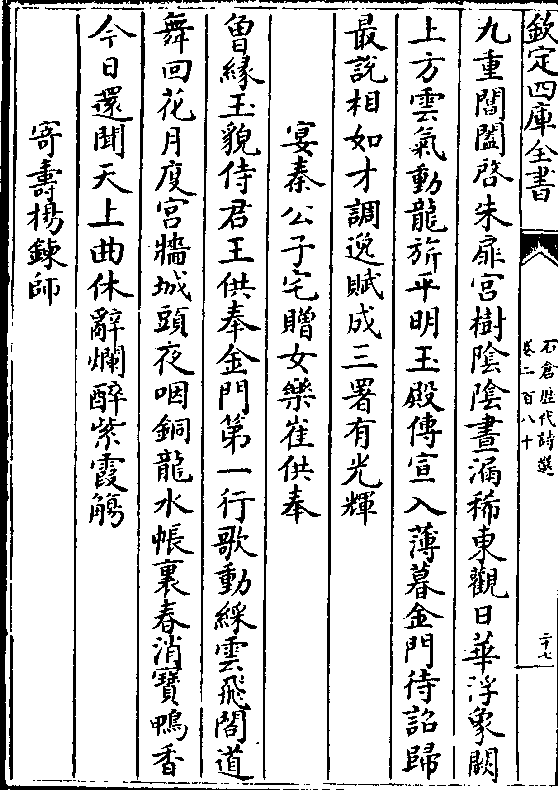 欽定四庫全書
石倉歷代詩選
卷二百八十
二十七
九重閶闔啓朱扉宮樹陰陰晝漏稀東觀日華浮象闕
上方雲氣動龍旂平明玉殿傳宣入薄暮金門待詔歸
最說相如才調逸賦成三署有光輝
宴秦公子宅贈女樂崔供奉
曾緣玉貌侍君王供奉金門第一行歌動綵雲飛閣道
舞回花月度宮牆城頭夜咽銅龍水帳裏春消寶鴨香
今日還聞天上曲休辭爛醉紫霞觴
寄壽楊鍊師